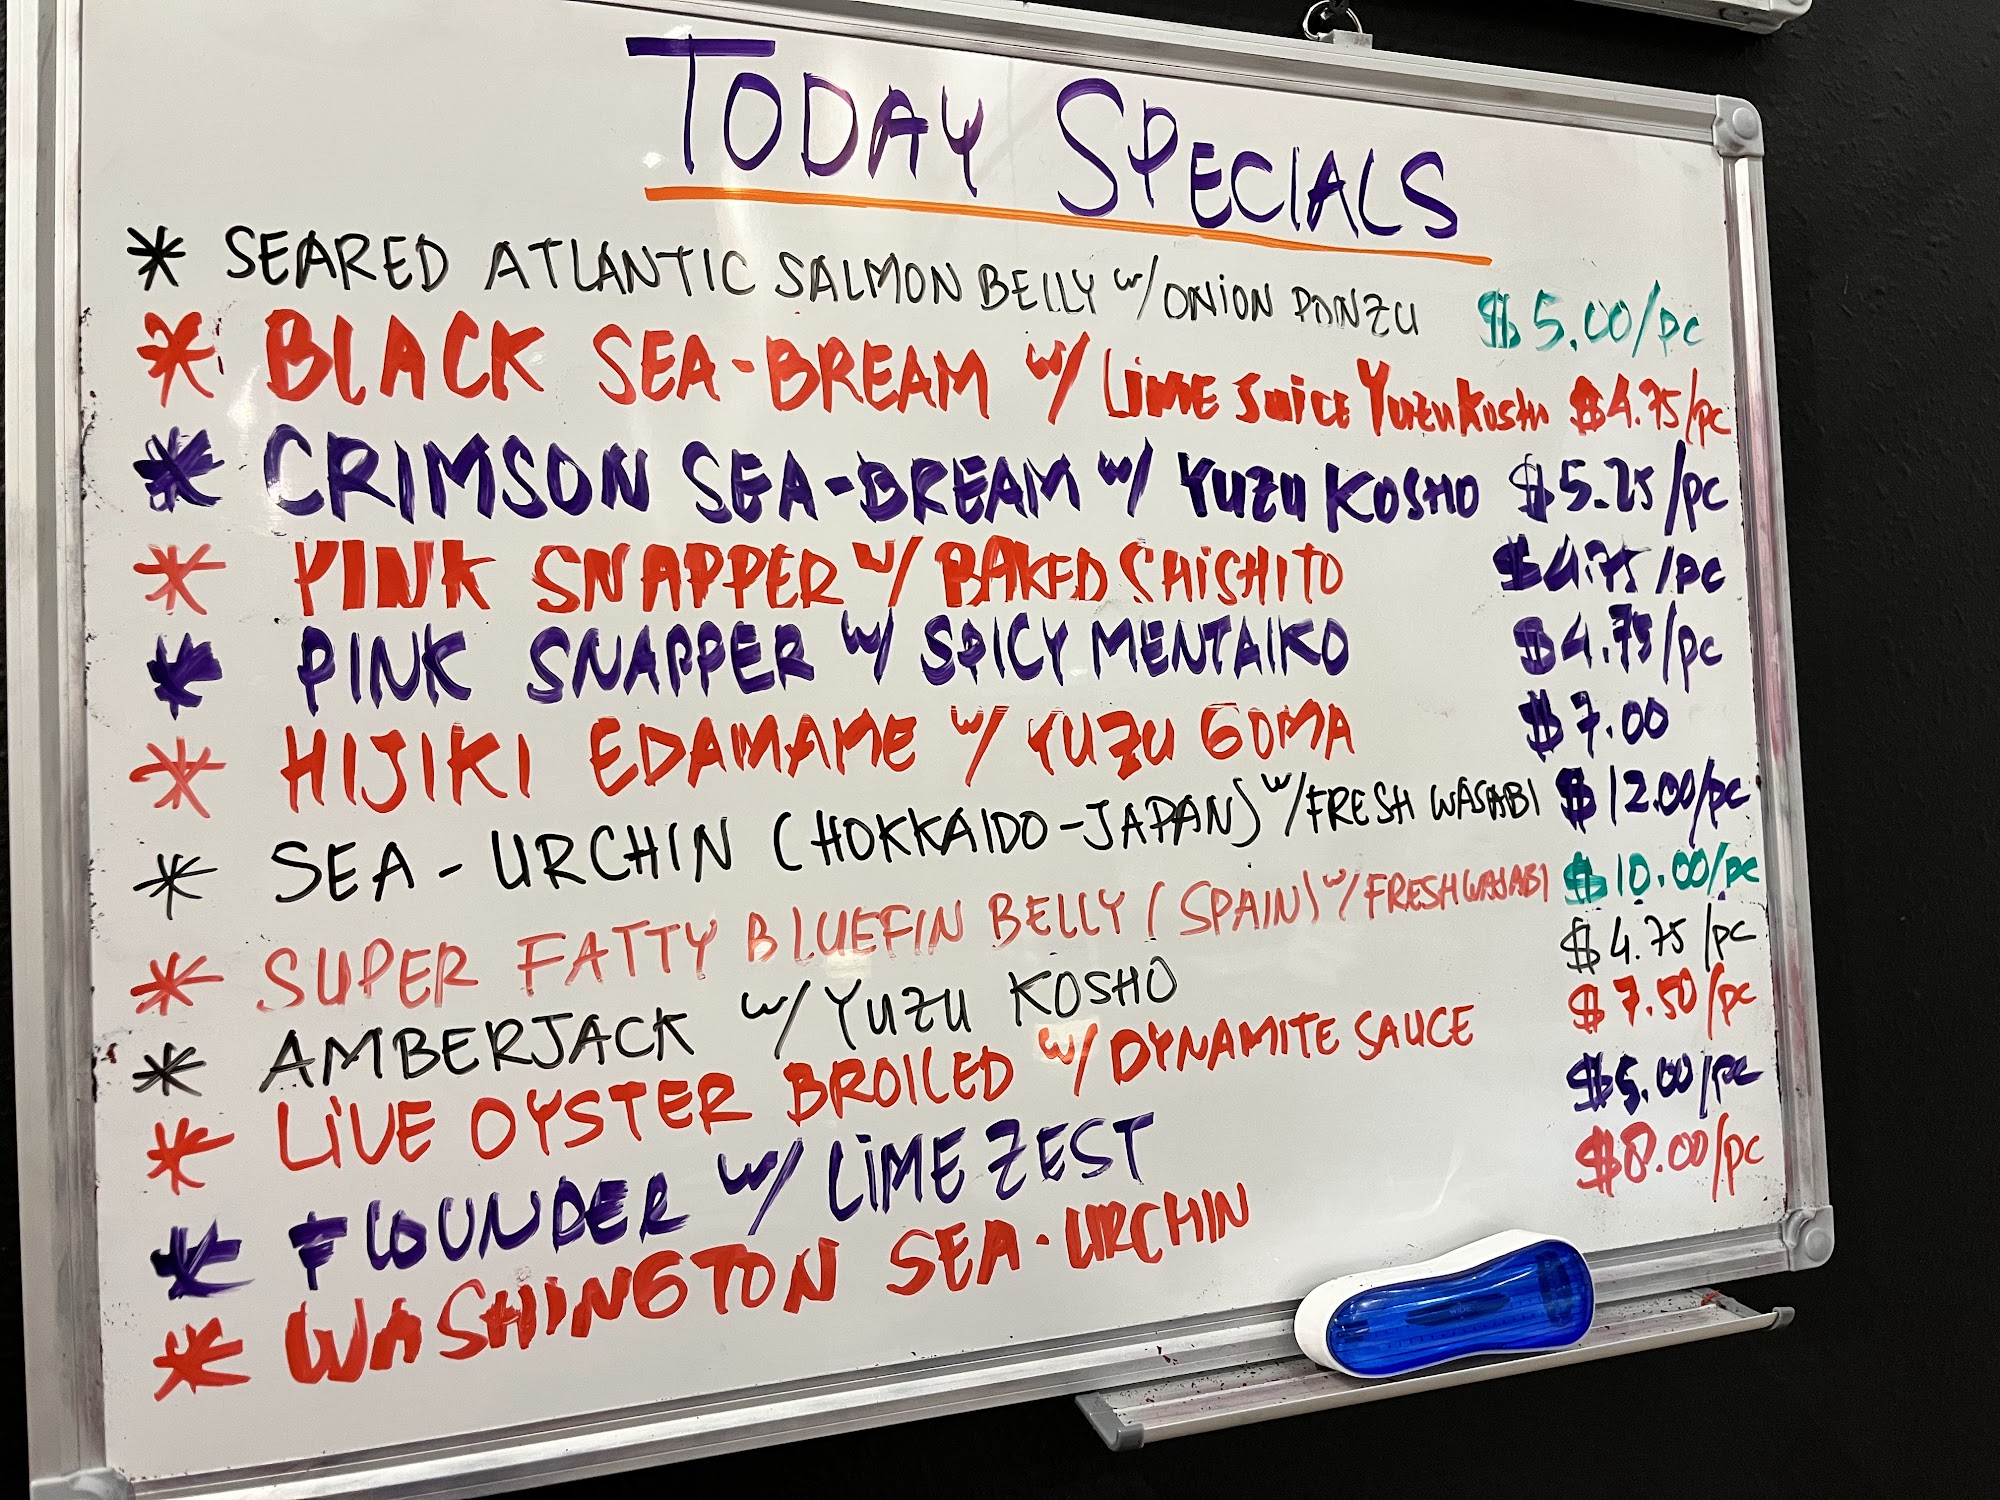 TODAY SPECIALS
* SEARED ATLANTIC SALMON BELLY w/ ONION PONZU $5.00/pc
* BLACK SEA-BREAM w/ LiME JUiCE YUZU KOSHO $4.75/pc
* CRIMSON SEA-BREAM w/ YUZU KOSHO $5.25/pc
* PINK SNAPPER w/ BAKED SHiSHITO $4.75/pc
* PINK SNAPPER w/ SPICY MENTAIKO $4.75/pc
* HIJIKI EDAMAME w/ YUZU GOMA $7.00
* SEA-URCHIN (HOKKAIDO-JAPAN) w/ FRESH WASABI $12.00/pc
* SUPER FATTY BLUEFIN BELLY (SPAIN) w/ FRESH WASABI $10.00/pc
* AMBERJACK w/ YUZU KOSHO $4.75/pc
* LiVE OYSTER BROILED w/ DYNAMITE SAUCE $7.50/pc
* FLOUNDER w/ LiME ZEST $5.00/pc
* WASHINGTON SEA-URCHIN $8.00/pc